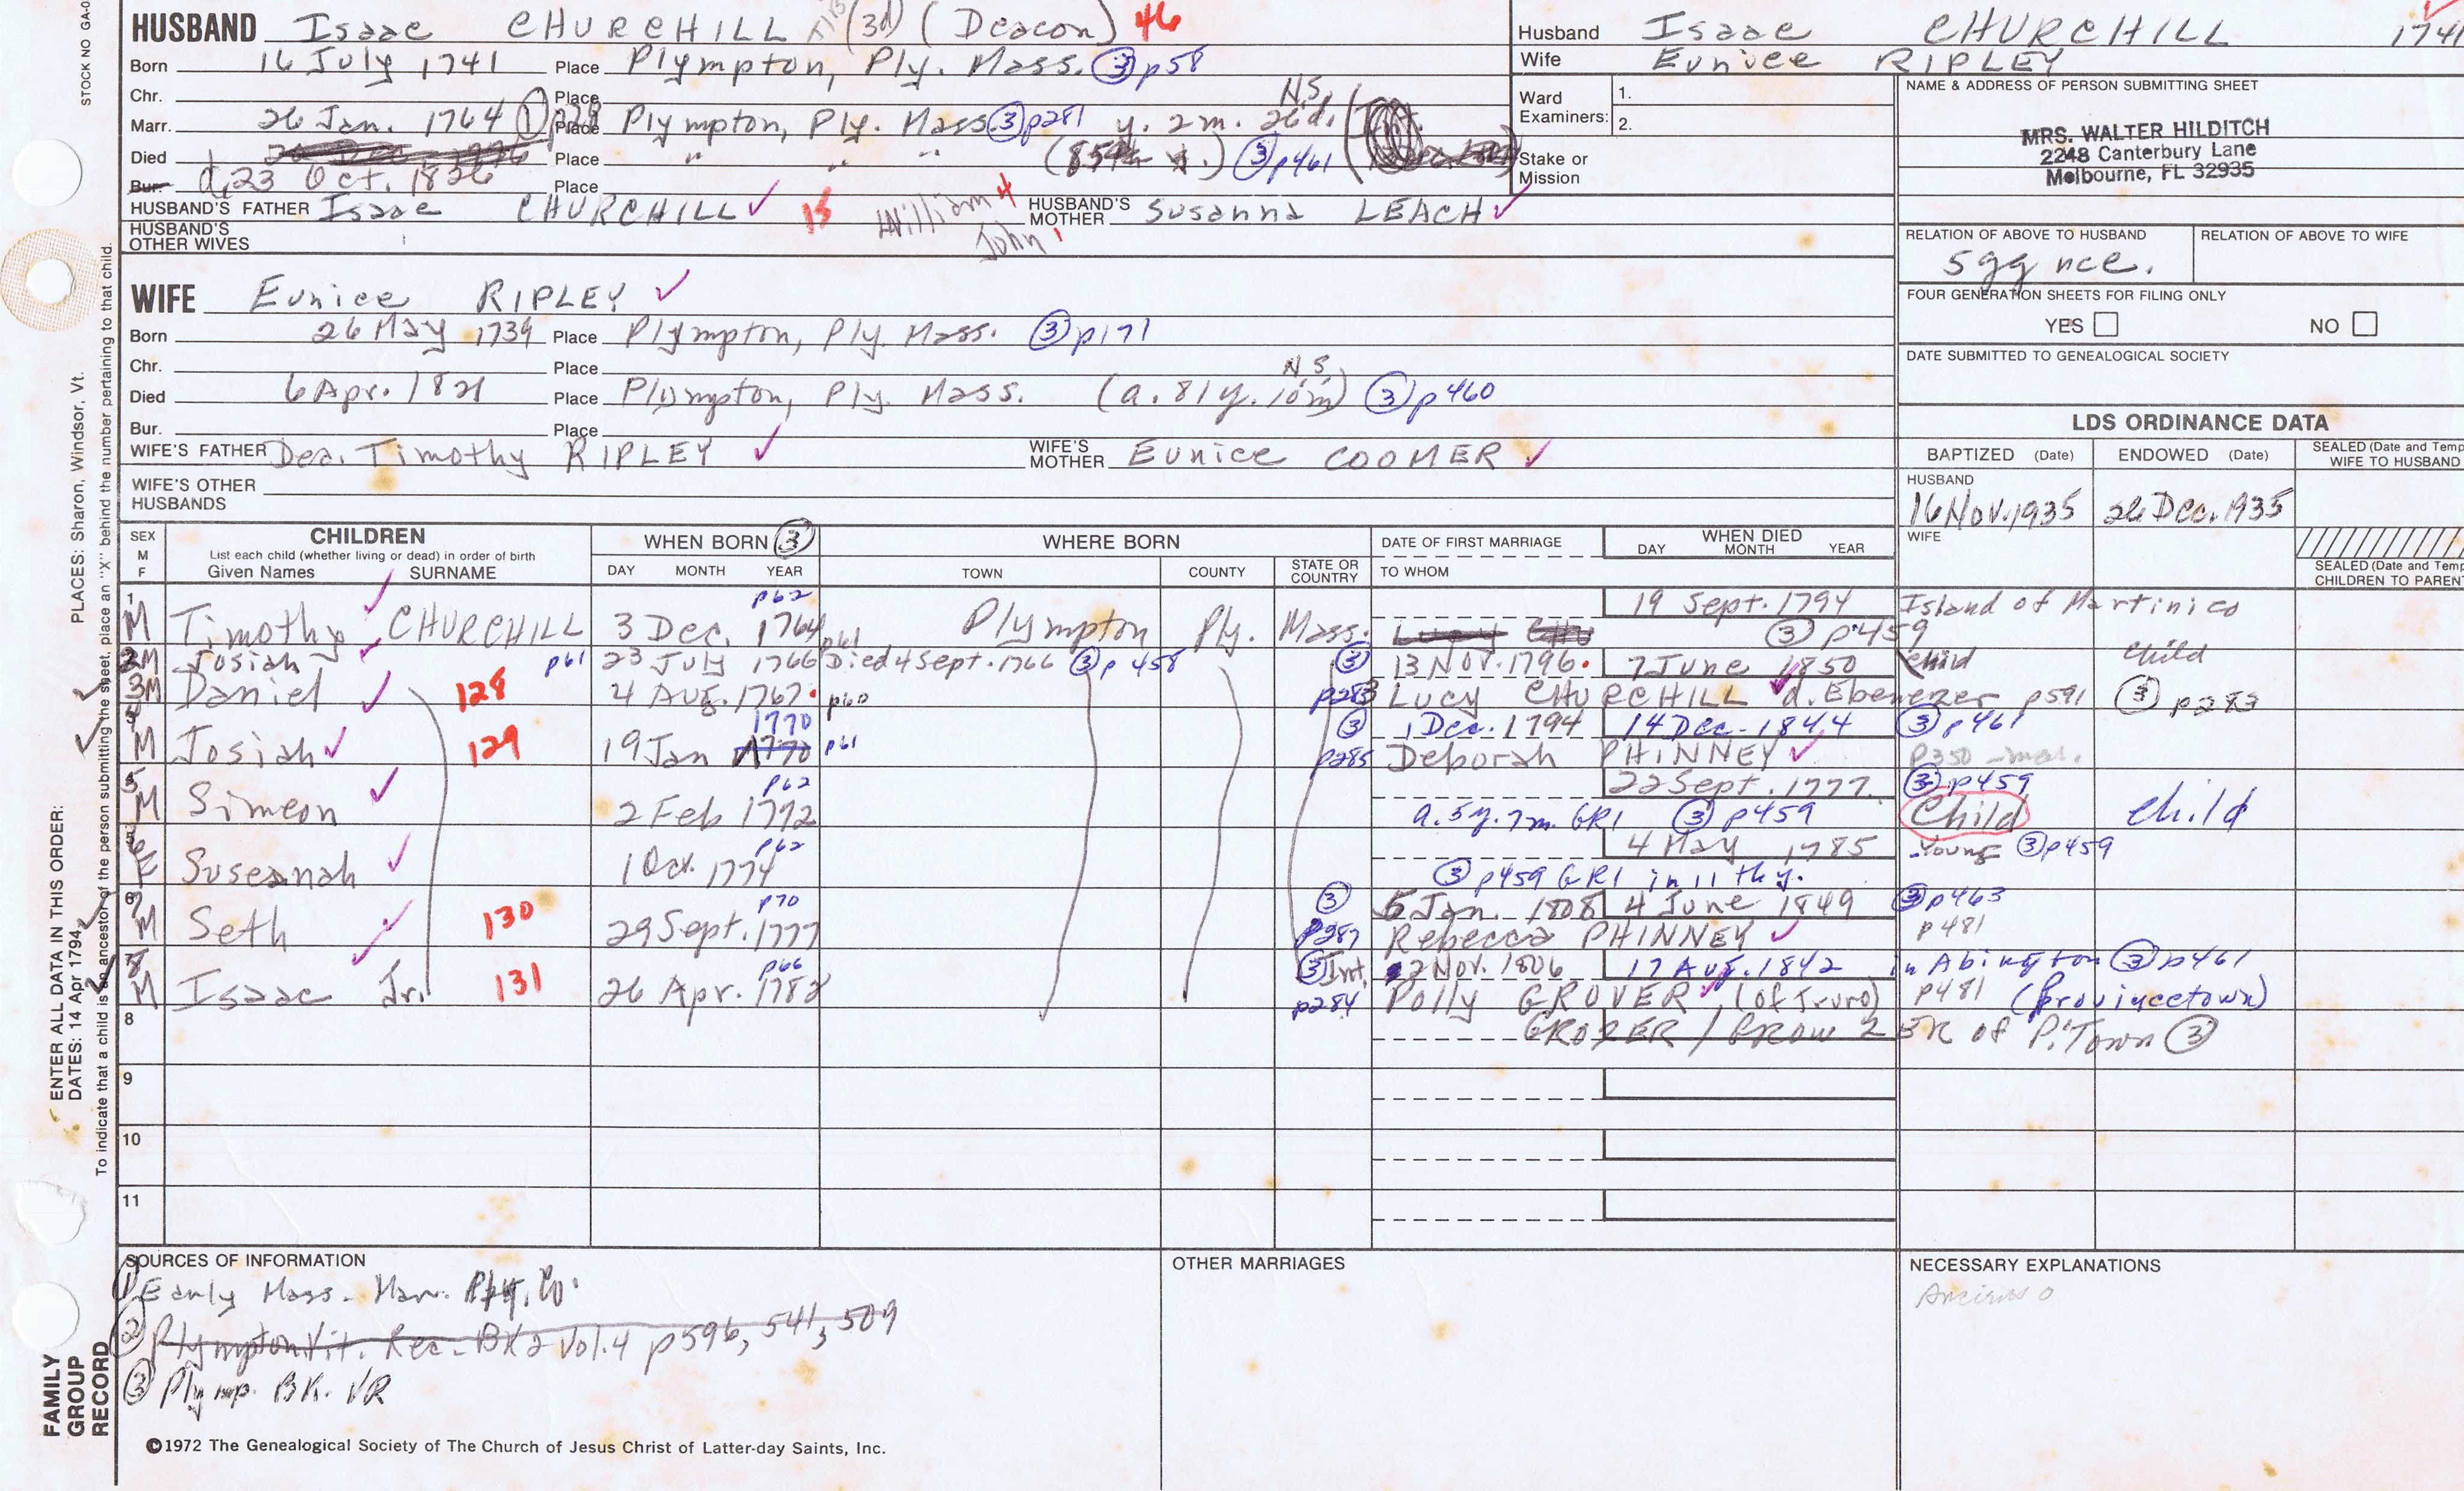 HUSBAND Isaac CHURCHILL (3d) (Deacon) 46
Born 16 July 1741 Place Plympton, Ply. Mass. ③ p58
Chr. Place
Marr. 26 Jan. 1764 ① Place Plympton, Ply. Mass. ③ p281 y. 2m. 26d. N.S.
Died Place " " " (85 ③ p461
Bur. d. 23 Oct. 1826 Place
HUSBAND'S FATHER Isaac CHURCHILL ✓ 15 William 4 John 1 HUSBAND'S MOTHER Susanna LEACH ✓
HUSBAND'S OTHER WIVES
WIFE Eunice RIPLEY ✓
Born 26 May 1739 Place Plympton, Ply. Mass. ③ p171
Chr. Place
Died 6 Apr. 1821 Place Plympton, Ply. Mass. (a. 81y. 10m) N.S. ③ p460
Bur. Place
WIFE'S FATHER Dea. Timothy RIPLEY ✓ WIFE'S MOTHER Eunice COOMER ✓
WIFE'S OTHER HUSBANDS
Husband Isaac CHURCHILL 1741
Wife Eunice RIPLEY
Ward Examiners: 1. 2.
Stake or Mission
NAME & ADDRESS OF PERSON SUBMITTING SHEET
MRS. WALTER HILDITCH
2248 Canterbury Lane
Melbourne, FL 32935
RELATION OF ABOVE TO HUSBAND RELATION OF ABOVE TO WIFE
5gg nce.
FOUR GENERATION SHEETS FOR FILING ONLY
YES NO
DATE SUBMITTED TO GENEALOGICAL SOCIETY
LDS ORDINANCE DATA
BAPTIZED (Date) ENDOWED (Date) SEALED (Date and Temp WIFE TO HUSBAND
HUSBAND
16 Nov. 1935 26 Dec. 1935
WIFE
SEALED (Date and Temp CHILDREN TO PARENT
SEX M F CHILDREN List each child (whether living or dead) in order of birth Given Names SURNAME
WHEN BORN ③ DAY MONTH YEAR
WHERE BORN TOWN COUNTY STATE OR COUNTRY
DATE OF FIRST MARRIAGE TO WHOM
WHEN DIED DAY MONTH YEAR
1 M Timothy CHURCHILL 3 Dec. 1764 p62 Plympton Ply. Mass. 19 Sept. 1794 Island of Martinico ③ p459
2 M Josiah p61 23 July 1766 p61 Died 4 Sept. 1766 ③ p458 child child
3 M Daniel 128 4 Aug. 1767 p60 ③ p283 13 Nov. 1796 7 June 1850 Lucy CHURCHILL d. Ebenezer p591 ③ p283
4 M Josiah 129 19 Jan 1770 1770 p61 ③ p285 1 Dec. 1794 14 Dec. 1844 ③ p461 Deborah PHINNEY p350
5 M Simeon 2 Feb 1772 p62 22 Sept. 1777 ③ p459 a. 5y. 7m. GR1 ③ p459 Child child
6 F Suseanah 1 Oct. 1774 p62 4 May 1785 Young ③ p459 ③ p459 GR1 in 11thy.
7 M Seth 130 29 Sept. 1777 p70 ③ p287 5 Jan. 1808 4 June 1849 ③ p463 Rebecca PHINNEY p481
8 M Isaac Jr. 131 26 Apr. 1782 p66 ③ Int. p284 2 Nov. 1806 17 Aug. 1842 in Abington ③ p461 Polly GROVER (of Truro) p481 (Provincetown)
8 of P.'Town ③
9
10
11
SOURCES OF INFORMATION
① Early Mass. Mar. Ply. Co.
② Plympton Vit. Rec. BK2 Vol. 4 p596, 541, 509
③ Plymp. BK. VR
OTHER MARRIAGES
NECESSARY EXPLANATIONS
©1972 The Genealogical Society of The Church of Jesus Christ of Latter-day Saints, Inc.
FAMILY GROUP RECORD
ENTER ALL DATA IN THIS ORDER:
DATES: 14 Apr 1794
PLACES: Sharon, Windsor, Vt.
To indicate that a child is an ancestor of the person submitting the sheet, place an "X" behind the number pertaining to that child.
STOCK NO GA-0